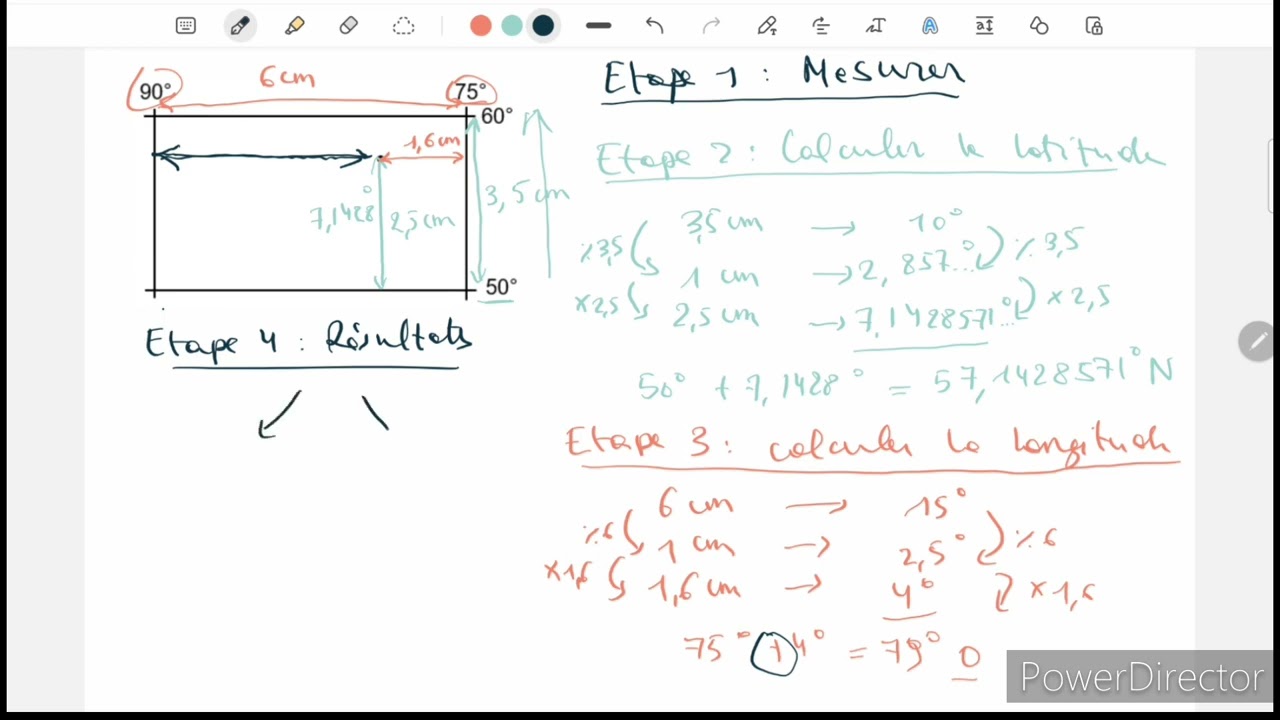 90°
6cm
75°
60°
1,6cm
7,1428°
2,5cm
3,5cm
50°
Etape 4 : Résultats
Etape 1 : Mesurer
Etape 2 : Calculer la latitude
3,5 cm → 10°
1 cm → 2,857...°
2,5 cm → 7,1428571...°
٪3,5
×2,5
٪3,5
×2,5
50° + 7,1428° = 57,1428571° N
Etape 3 : calculer la longitude
6 cm → 15°
1 cm → 2,5°
1,6 cm → 4°
٪6
×1,6
٪6
×1,6
75° + 4° = 79° O
PowerDirector